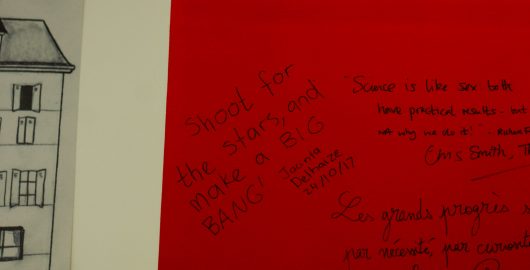 Shoot for
the stars, and
make a BIG
BANG!
Jacinta
Delhaize
24/10/17
"Science is like sex both
have practical results - but
not why we do it!
Chris Smith, Th
Les grands progrès s
par nécessité, par curiosit